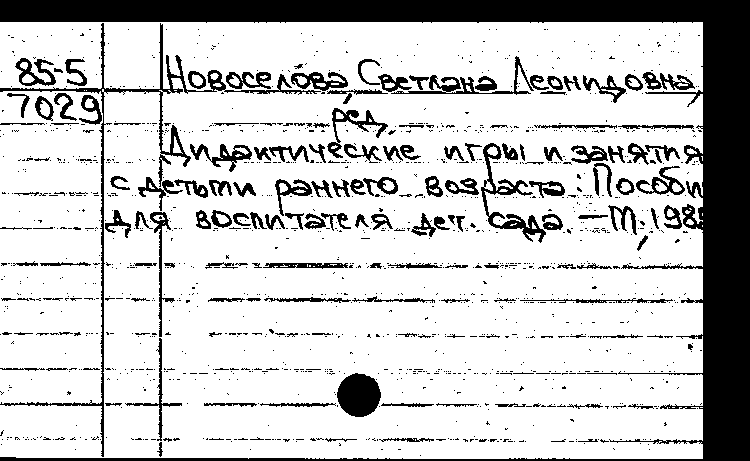 85-5 Новоселова Светлана Леонидовна,
7029
ред.
Дидактические игры и занятия
с детьми раннего возраста: Пособи
для воспитателя дет. сада. — М., 198